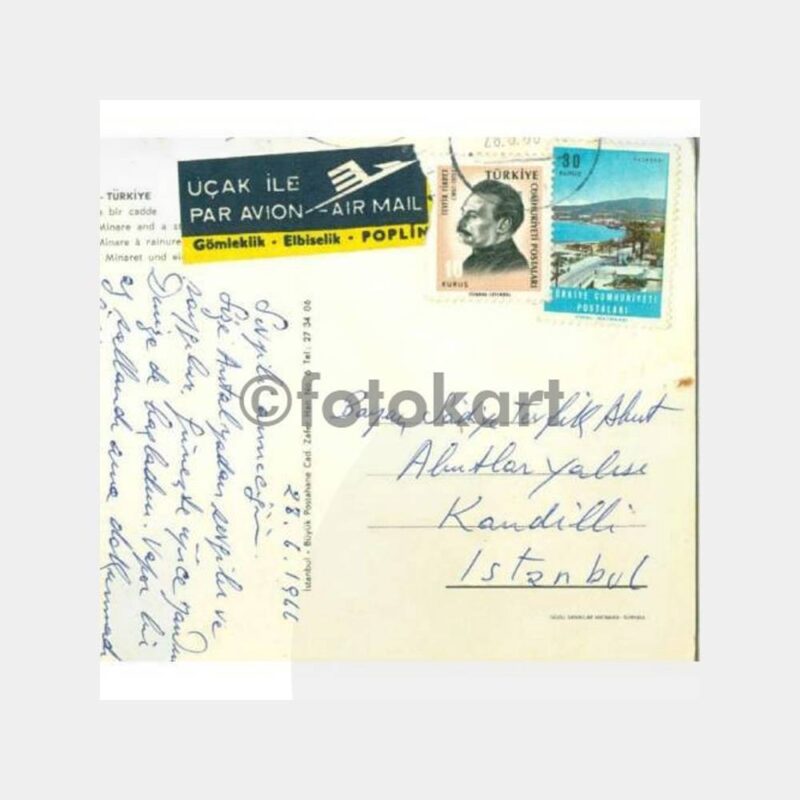 - TÜRKİYE
bir cadde
Minare and a s
Minare à rainure
Minaret und ei
UÇAK İLE
PAR AVION - AIR MAIL
Gömleklik - Elbiselik - POPLİN
28.6.66
TÜRKİYE
CUMHURİYETİ POSTALARI
10
KURUŞ
30
KURUŞ
TÜRKİYE CUMHURİYETİ
POSTALARI
İstanbul - Büyük Postahane Cad. Zafer Han No. Tel: 27 34 06
28.6.1966
Sevgili anneciğim.
Size Antalyadan sevgiler ve
saygılar. Güneşte iyice yandım
Denize de başladım. Vapor bir
az sallandı ama dokunmadı
Bayan Tevfik Abut
Abutlar Yalısı
Kandilli
Istanbul
©fotokart